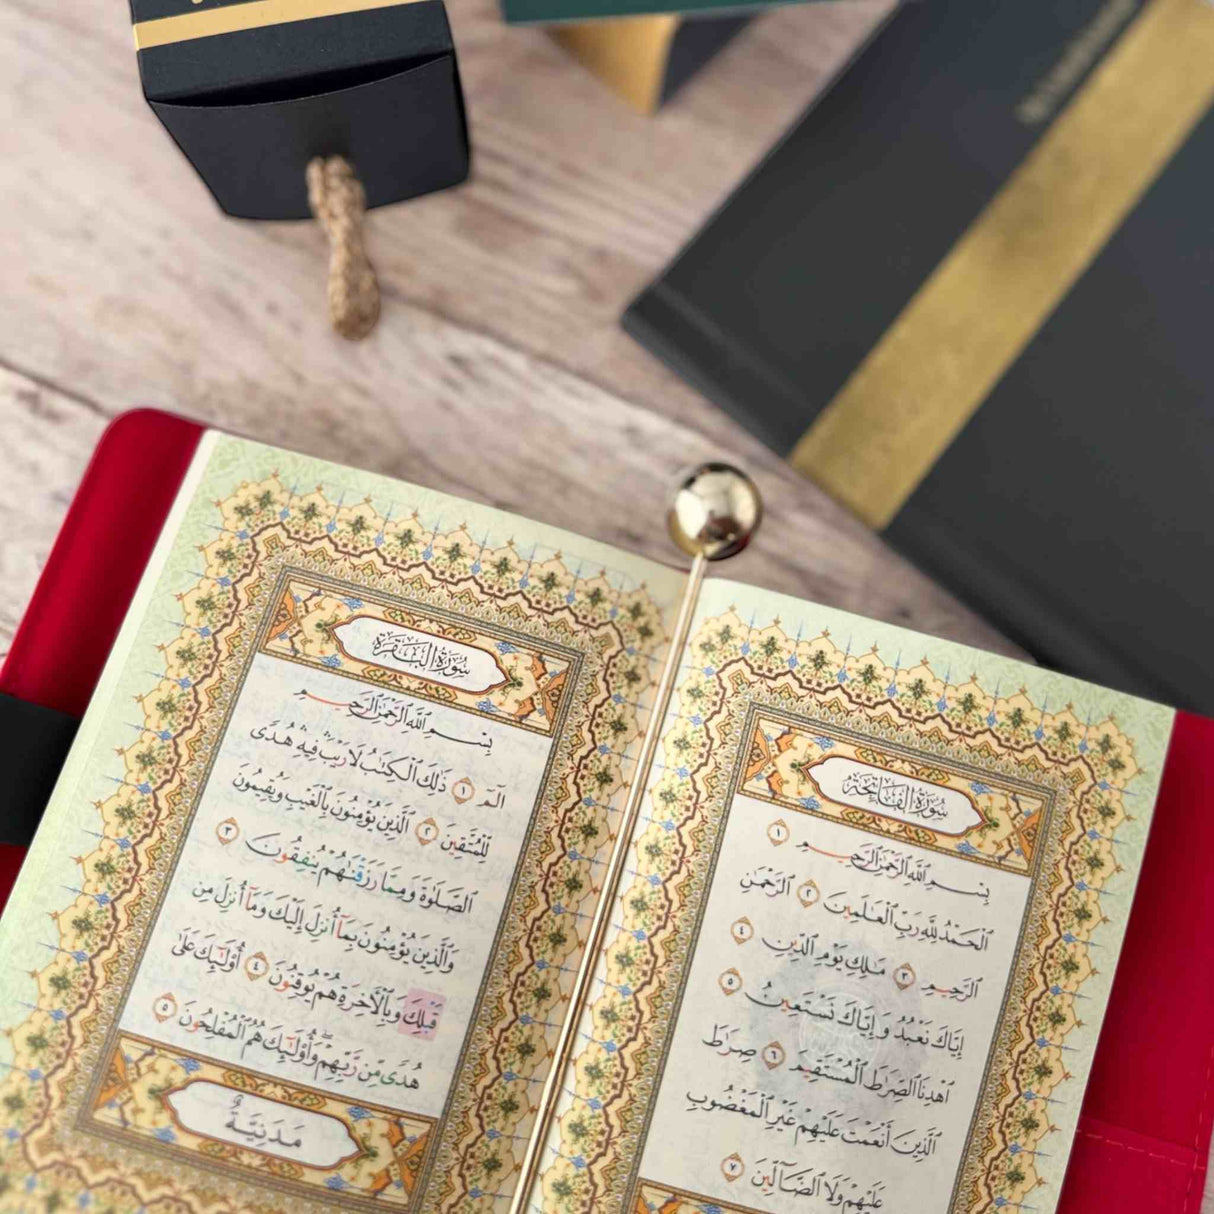 سُورَةُ الْفَاتِحَةِ
بِسْمِ ٱللَّهِ ٱلرَّحْمَٰنِ ٱلرَّحِيمِ ١
ٱلْحَمْدُ لِلَّهِ رَبِّ ٱلْعَٰلَمِينَ ٢ ٱلرَّحْمَٰنِ
ٱلرَّحِيمِ ٣ مَٰلِكِ يَوْمِ ٱلدِّينِ ٤
إِيَّاكَ نَعْبُدُ وَإِيَّاكَ نَسْتَعِينُ ٥
ٱهْدِنَا ٱلصِّرَٰطَ ٱلْمُسْتَقِيمَ ٦ صِرَٰطَ
ٱلَّذِينَ أَنْعَمْتَ عَلَيْهِمْ غَيْرِ ٱلْمَغْضُوبِ
عَلَيْهِمْ وَلَا ٱلضَّآلِّينَ ٧
سُورَةُ الْبَقَرَةِ
بِسْمِ ٱللَّهِ ٱلرَّحْمَٰنِ ٱلرَّحِيمِ
الٓمٓ ١ ذَٰلِكَ ٱلْكِتَٰبُ لَا رَيْبَ ۛ فِيهِ ۛ هُدًى
لِّلْمُتَّقِينَ ٢ ٱلَّذِينَ يُؤْمِنُونَ بِٱلْغَيْبِ وَيُقِيمُونَ
ٱلصَّلَوٰةَ وَمِمَّا رَزَقْنَٰهُمْ يُنفِقُونَ ٣
وَٱلَّذِينَ يُؤْمِنُونَ بِمَآ أُنزِلَ إِلَيْكَ وَمَآ أُنزِلَ مِن
قَبْلِكَ وَبِٱلْءَاخِرَةِ هُمْ يُوقِنُونَ ٤ أُو۟لَٰٓئِكَ عَلَىٰ
هُدًى مِّن رَّبِّهِمْ ۖ وَأُو۟لَٰٓئِكَ هُمُ ٱلْمُفْلِحُونَ ٥
مَدَنِيَّةٌ